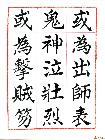 或為出師表
鬼神泣壯烈
或為擊賊笏